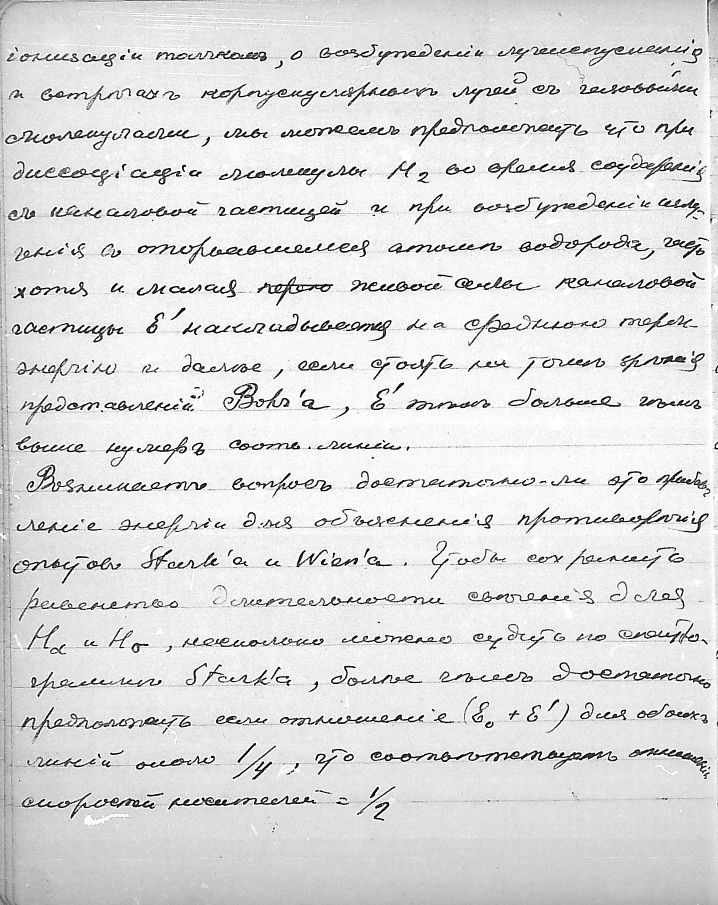 іонизаціи толчкомъ, о возбужденіи лучеиспусканія
и встрѣчахъ корпускулярныхъ лучей съ газовыми
молекулами, мы можемъ предположить что при
диссоціаціи молекулы H2 во время соударенія
съ каналовой частицей и при возбужденіи излу-
ченія въ оторвавшемся атомѣ водорода, часть
хотя и малая живой силы каналовой
частицы E' накладывается на среднюю терм.
энергію и далѣе, если стоять на точкѣ зрѣнія
представленій Bohr'a, E' тѣмъ больше чѣмъ
выше нумеръ соотв. линіи.
Возникаетъ вопросъ достаточно-ли это прибав-
леніе энергіи для объясненія противорѣчія
опытовъ Stark'a и Wien'a. Чтобы сохранить
равенство длительности свѣченія для
Hα и Hδ, насколько можно судить по спектро-
граммамъ Stark'a, болѣе чѣмъ достаточно
предположить если отношеніе (E0 + E') для обоихъ
линій около 1/4, что соотвѣтствуетъ отношенію
скоростей носителей = 1/2